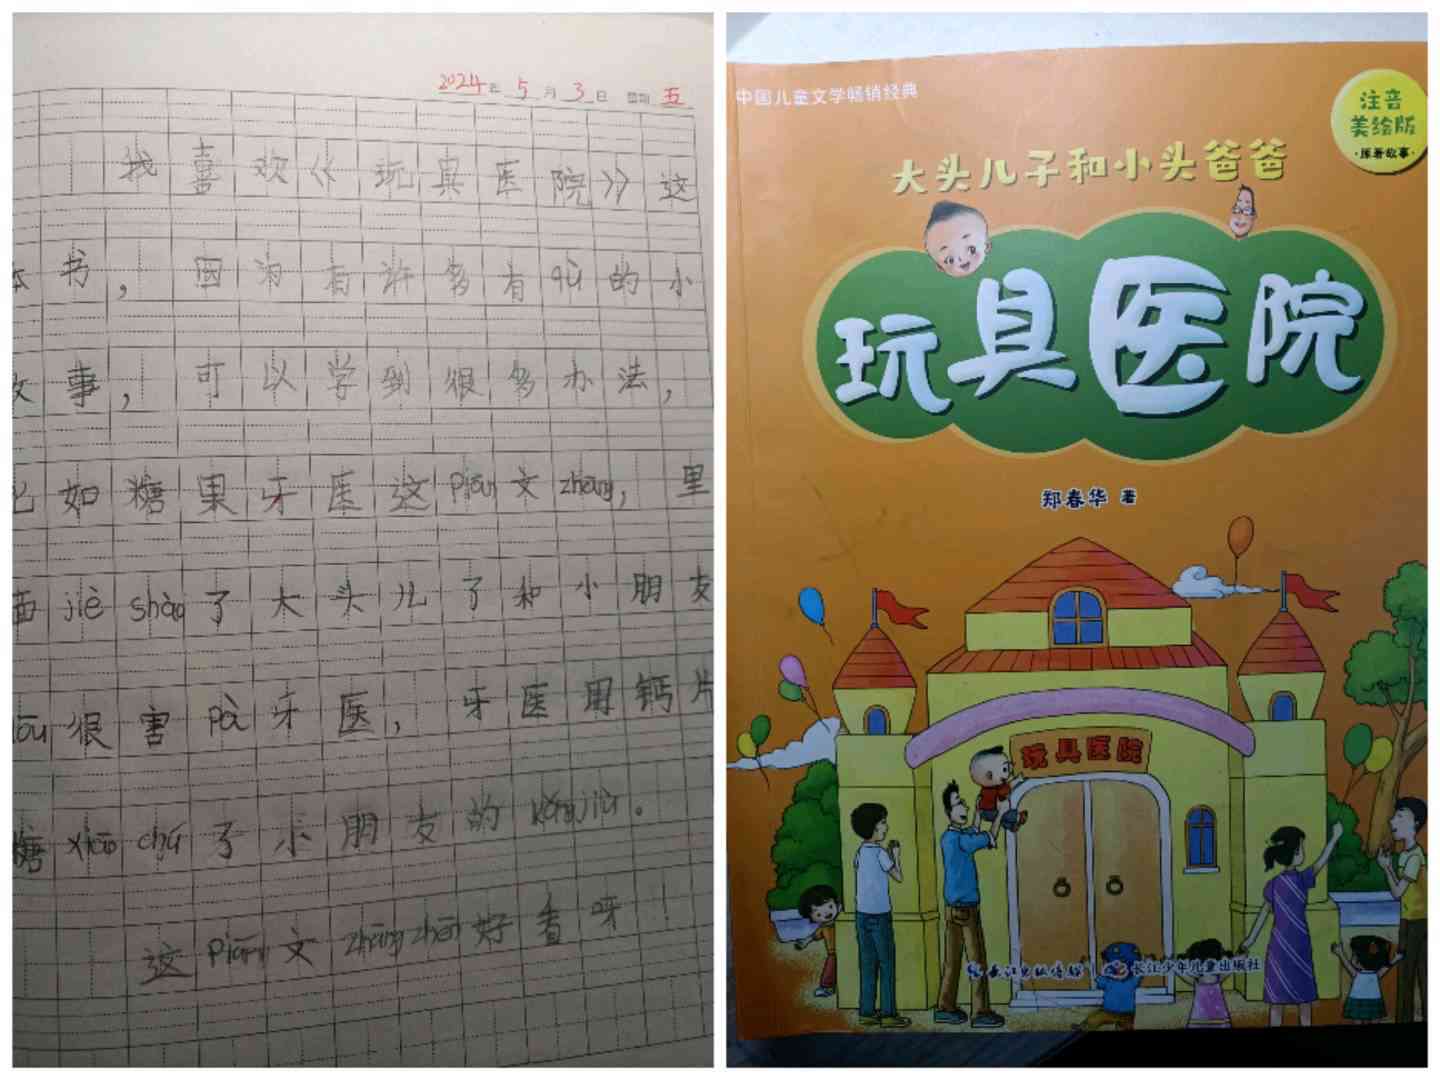 2024年5月3日 星期五
我喜欢《玩具医院》这
本书，因为有许多有qù的小
故事，可以学到很多办法，
比如糖果牙医这piān文zhāng，里
面jiè shào了大头儿子和小朋友
dōu很害pà牙医，牙医用钙片
糖xiāo chú了小朋友的kǒng jù。
这piān文zhāng zhēn好看呀！
中国儿童文学畅销经典
注音
美绘版
·原著故事·
大头儿子和小头爸爸
玩具医院
郑春华 著
玩具医院
长江出版传媒 长江少年儿童出版社